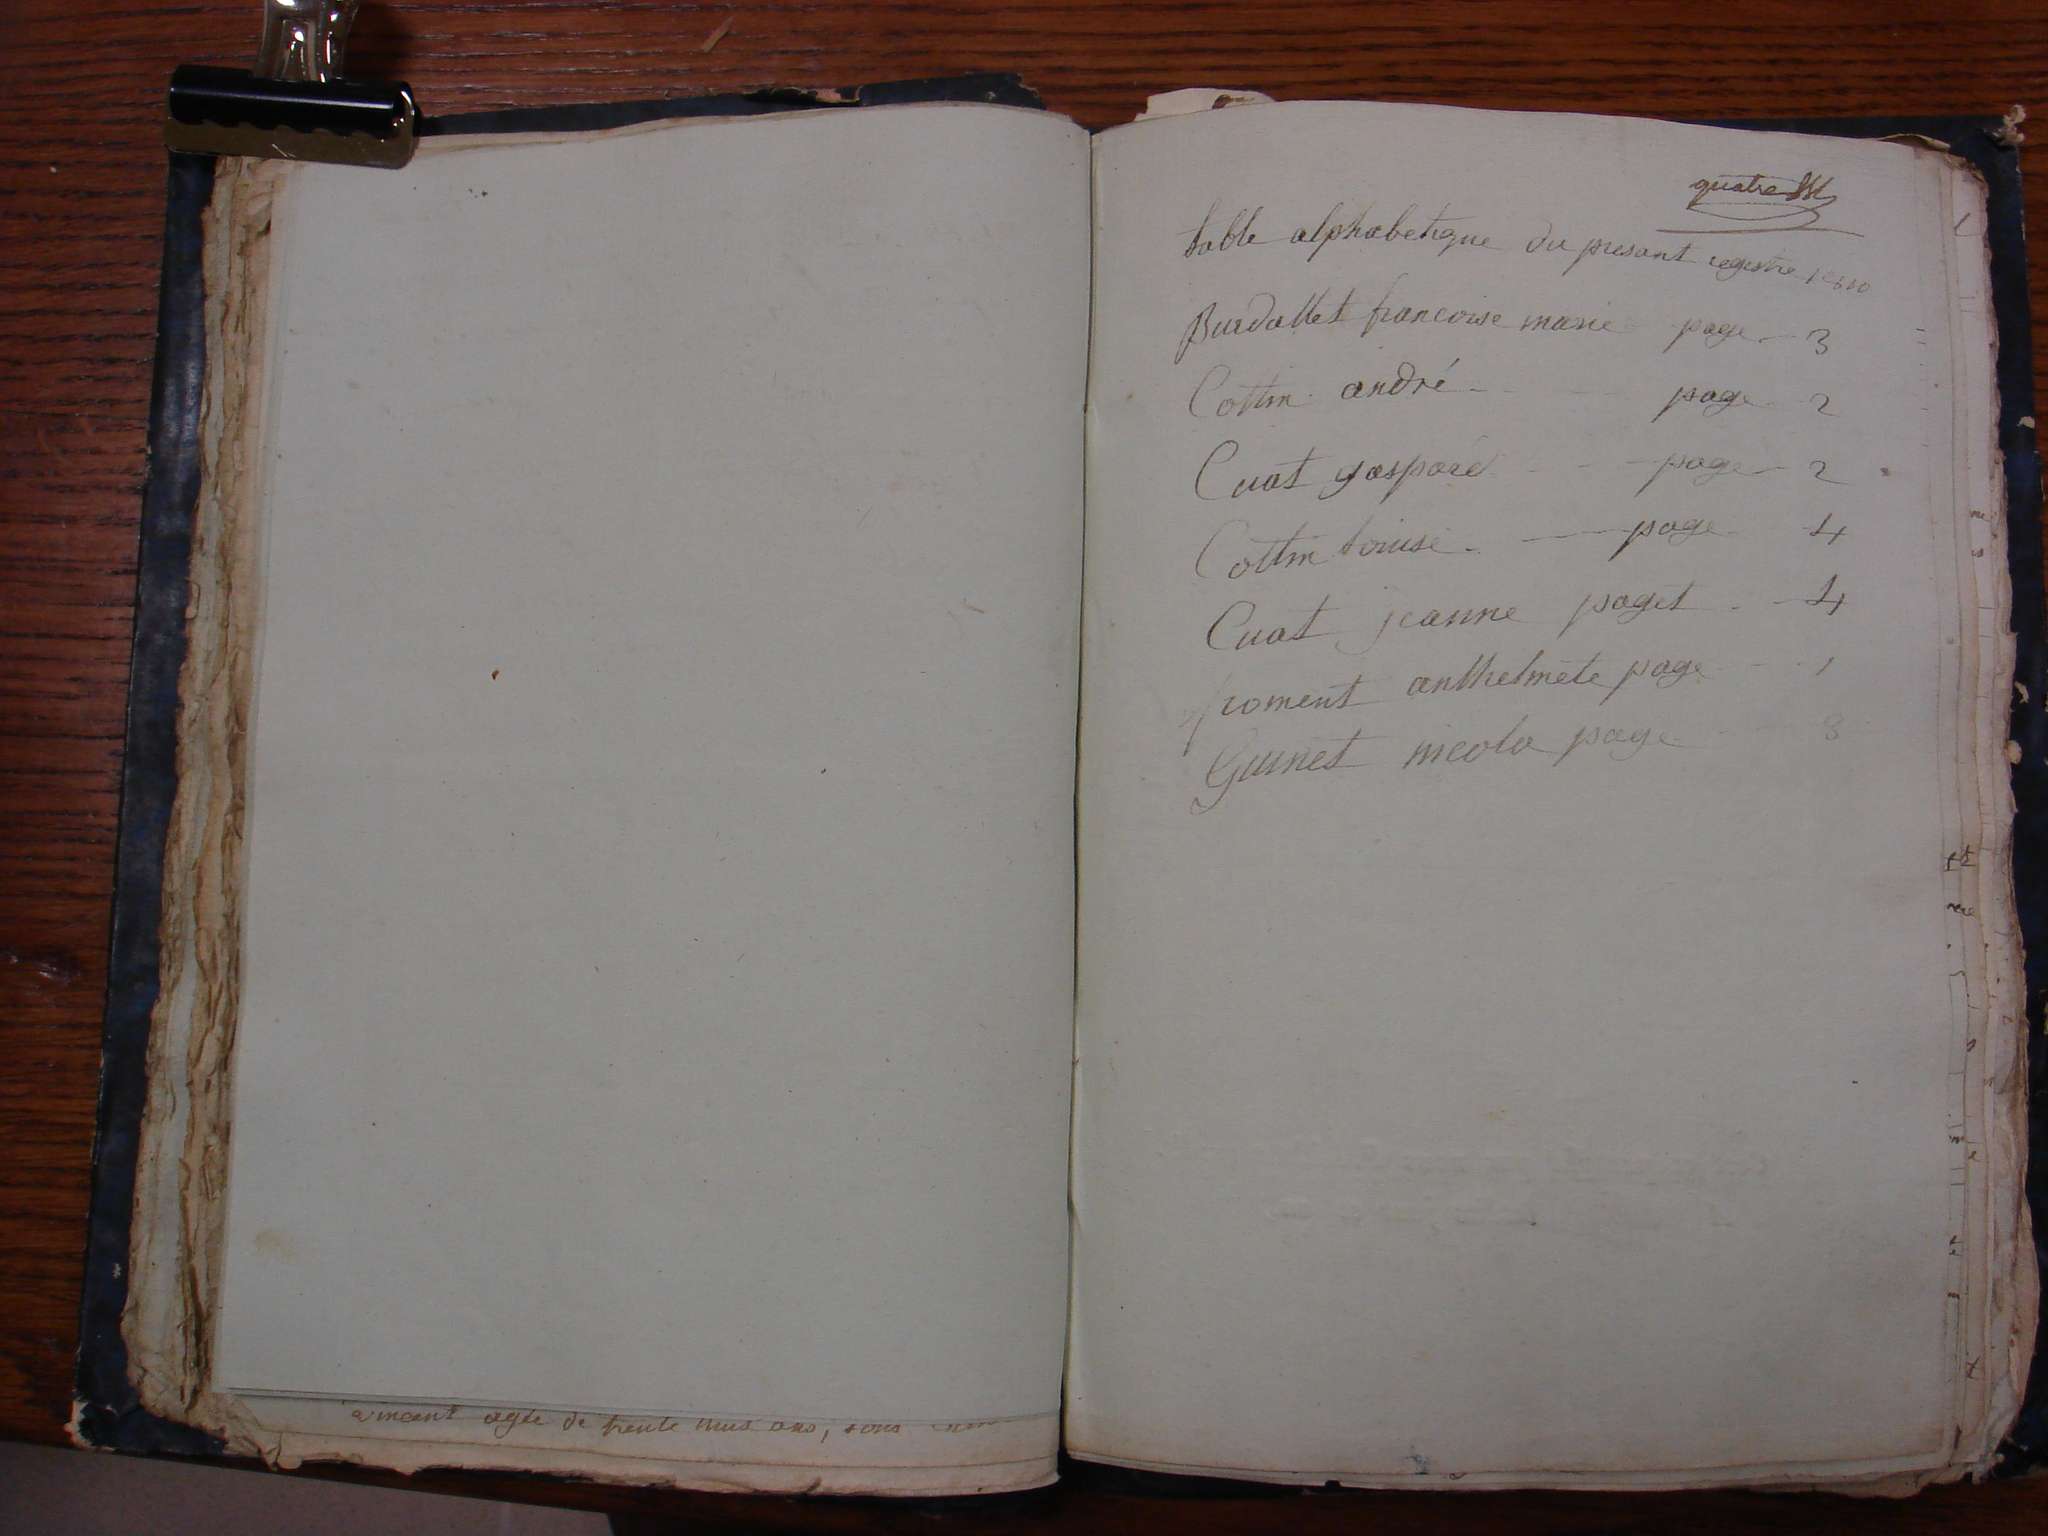 quatre
table alphabetique du presant registre
Burdallet francoise marie page 3
Cottin andré page 2
Cuat gaspard page 2
Cottin louise page 4
Cuat jeanne paget 4
froment anthelmete page 1
Guinet nicola page 3
vincent agée de trente huis ans, sous